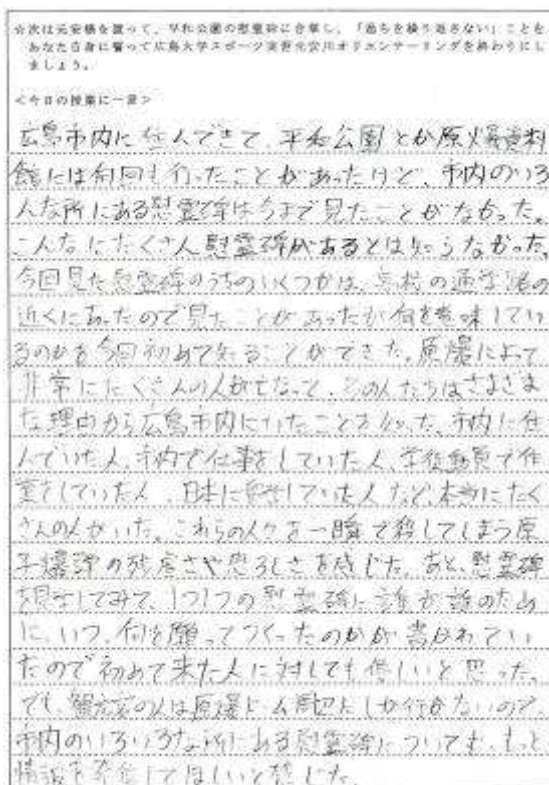 ☆次は元安橋を渡って、平和公園の慰霊碑に合掌し、「過ちを繰り返さない」ことを
あなた自身に誓って広島大学スポーツ実習元安川オリエンテーリングを終わりにし
ましょう。
<今日の授業に一言>
広島市内に住んできて、平和公園とか原爆資料
館には何回も行ったことがあったけど、市内のいろ
んな所にある慰霊碑は今まで見たことがなかった。
こんなにたくさん慰霊碑があるとは知らなかった。
今回見た慰霊碑のうちのいくつかは、高校の通学路の
近くにあったので見たことがあったが何を意味してい
るのかを今回初めて知ることができた。原爆によって
非常にたくさんの人が亡なって、その人たちはさまざま
な理由から広島市内にいたことを知った。市内に住
んでいた人、市内で仕事をしていた人、学徒動員で作
業をしていた人、日本に していた人など、本当にたく
さんの人がいた。これらの人々を一瞬で殺してしまう原
子爆弾の残虐さや恐ろしさを感じた。あと、慰霊碑
を見学してみて、1つ1つの慰霊碑に誰が誰のため
に、いつ、何を願ってつくったのかが書かれてい
たので初めて来た人に対しても優しいと思った。
でも、観光客の人は原爆ドーム周辺にしか行かないので、
市内のいろいろな所にある慰霊碑についても、もっと
情報を発信してほしいと感じた。